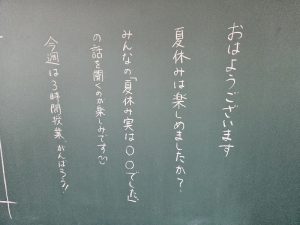 おはようございます
夏休みは楽しめましたか？
みんなの「夏休み実は〇〇でした」
の話を聞くのが楽しみです♡
今週は3時間授業 がんばろう！